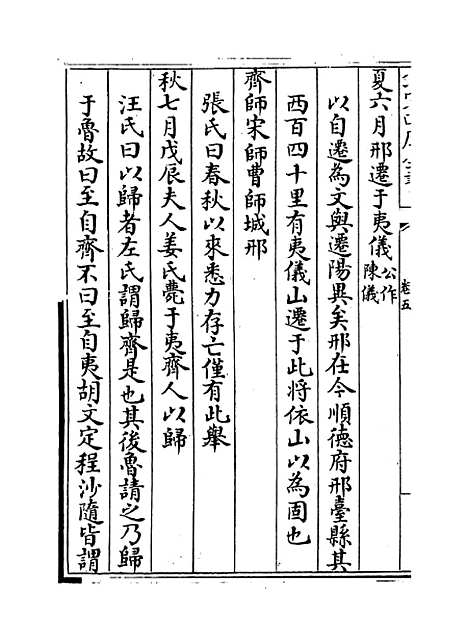 卷五
夏六月邢遷于夷儀公作陳儀
以自遷為文與遷陽異矣邢在今順德府邢臺縣其
西百四十里有夷儀山遷于此將依山以為固也
齊師宋師曹師城邢
張氏曰春秋以來悉力存亡僅有此舉
秋七月戊辰夫人姜氏薨于夷齊人以歸
汪氏曰以歸者左氏謂歸齊是也其後魯請之乃歸
于魯故曰至自齊不曰至自夷胡文定程沙隨皆謂